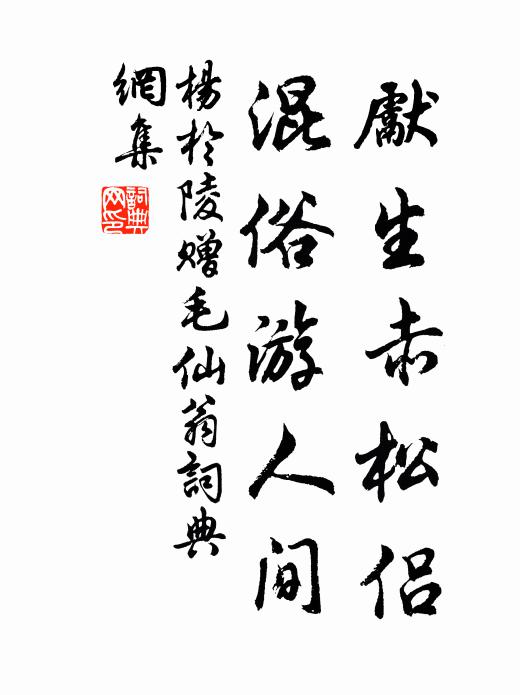 獻生赤松侶
混俗游人间
楊於陵赠毛仙翁詞典
網集
詞典網印